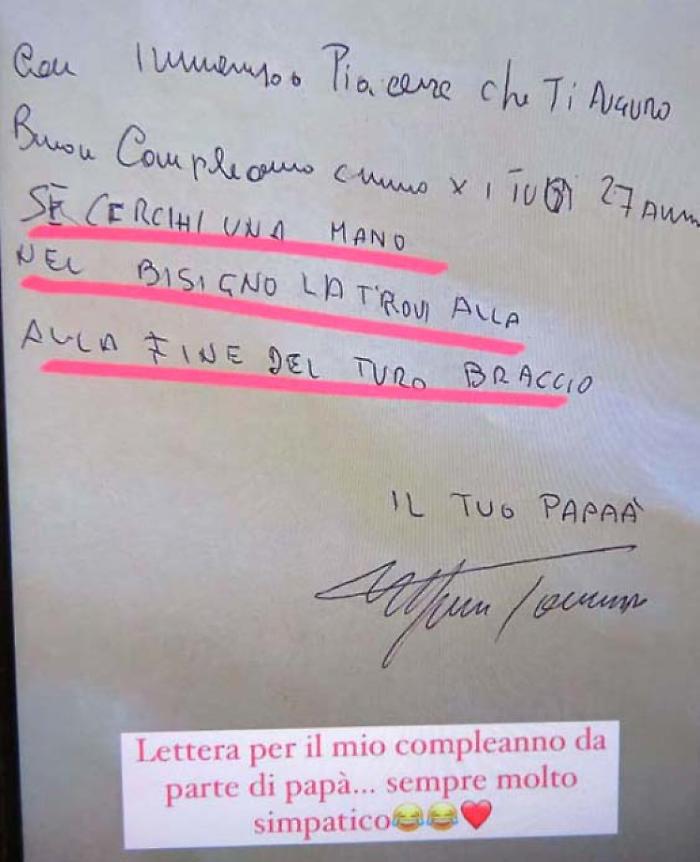 Con Immenso Piacere che Ti Auguro
Buon Compleanno x i TUOI 27 Anni
SE CERCHI UNA MANO
NEL BISIGNO LA TROVI ALLA
ALLA FINE DEL TURO BRACCIO
IL TUO PAPAÀ
Lettera per il mio compleanno da
parte di papà... sempre molto
simpatico😂😂❤️